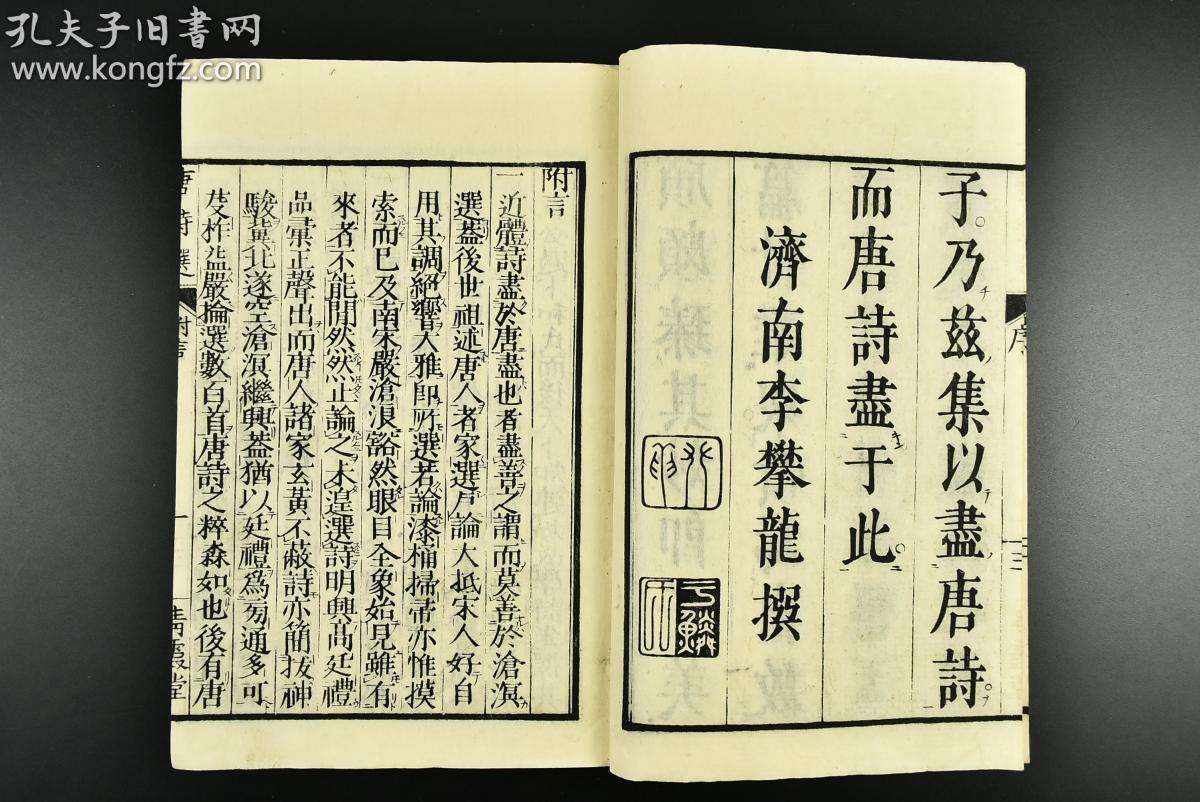 孔夫子旧书网
www.kongfz.com
子乃茲集以盡唐詩
而唐詩盡于此
濟南李攀龍撰
序
三
附言
一近體詩盡於唐盡也者盡善之謂而莫善於滄溟
選蓋後世祖述唐人者家選戶論大抵宋人好自
用其調絕響大雅即所選若論漆桶掃帚亦惟摸
索而已及南宋嚴滄浪豁然眼目全象始見雖有
來者不能間然然止論之未遑選詩明興高廷禮
品彙正聲出而唐人諸家玄黃不蔽詩亦簡拔神
駿冀北遂空滄溟繼興蓋猶以廷禮爲易通多可
芟柞益嚴掄選數百首唐詩之粹森如也後有唐
唐詩選
附言
一
嵩山堂